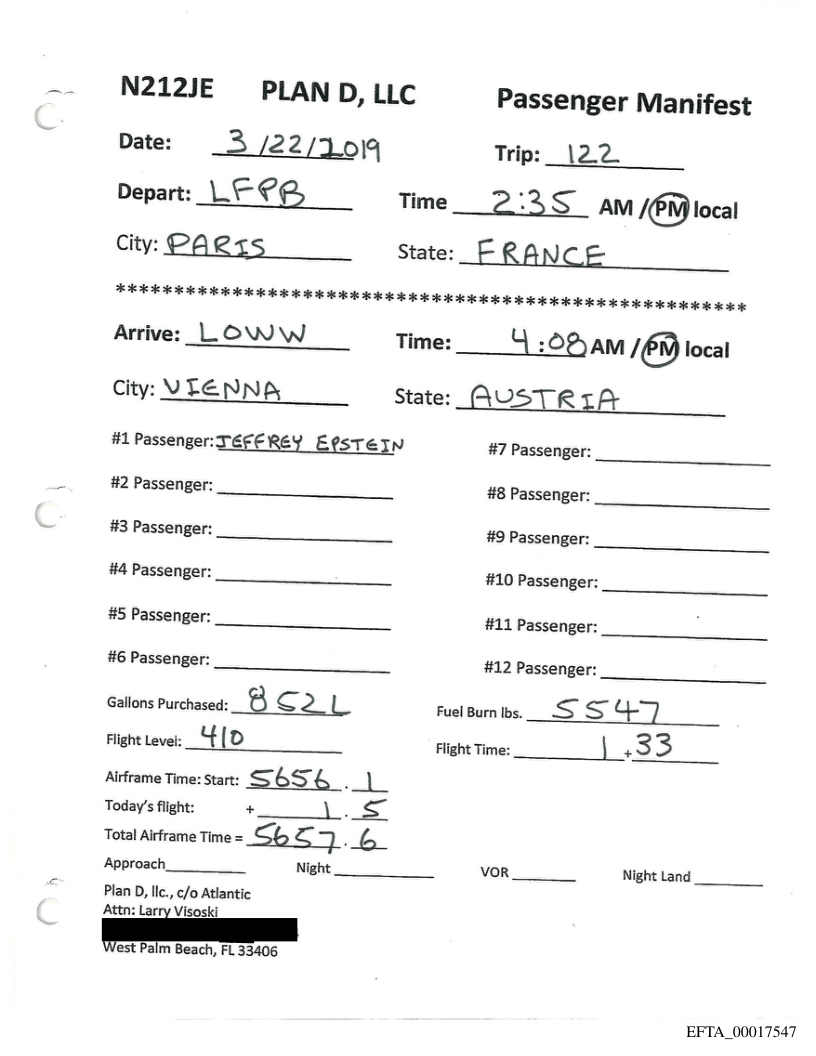 N212JE PLAN D, LLC Passenger Manifest
Date: 3/22/2019 Trip: 122
Depart: LFPB Time 2:35 AM / PM local
City: PARIS State: FRANCE
*****************************************************
Arrive: LOWW Time: 4:08 AM / PM local
City: VIENNA State: AUSTRIA
#1 Passenger: JEFFREY EPSTEIN #7 Passenger:
#2 Passenger: #8 Passenger:
#3 Passenger: #9 Passenger:
#4 Passenger: #10 Passenger:
#5 Passenger: #11 Passenger:
#6 Passenger: #12 Passenger:
Gallons Purchased: 852L Fuel Burn lbs. 5547
Flight Level: 410 Flight Time: 1+33
Airframe Time: Start: 5656.1
Today's flight: + 1.5
Total Airframe Time = 5657.6
Approach Night VOR Night Land
Plan D, llc., c/o Atlantic
Attn: Larry Visoski
West Palm Beach, FL 33406
EFTA_00017547